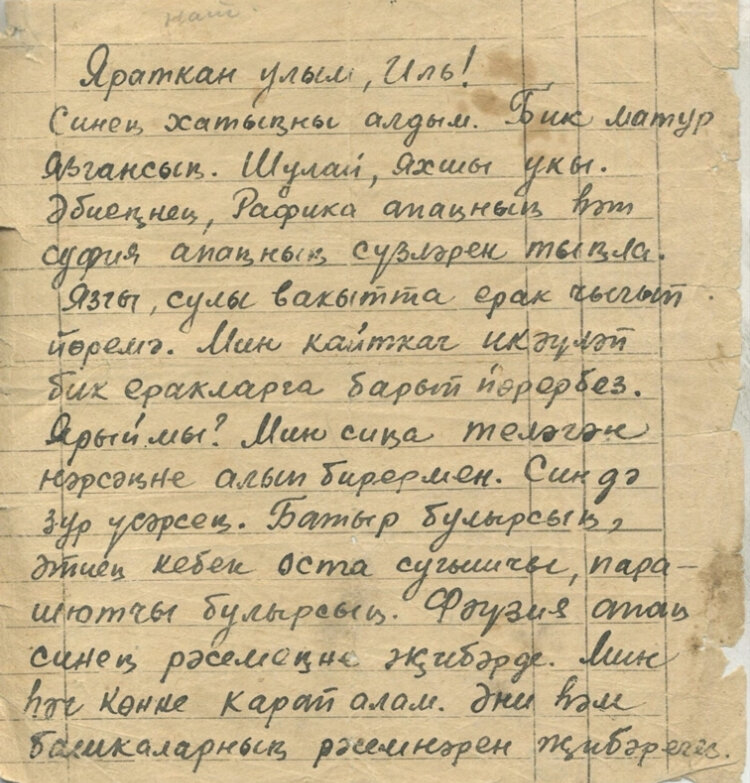 Яраткан улым, Иль!
Синең хатыңны алдым. Бик матур
язгансың. Шулай, яхшы укы.
Әбиеңнең, Рафика апаңның һәм
суфия апаңның сүзләрен тыңла.
Язгы, сулы вакытта ерак чыгып
йөремә. Мин кайткач икәүләп
бик еракларга барып йөрербез.
Ярыймы? Мин сиңа теләгән
нәрсәңне алып бирермен. Син дә
зур үсәрсең. Батыр булырсың,
әтиең кебек оста сугышчы, пара-
шютчы булырсың. Фәүзия апаң
синең рәсемеңне җибәрде. Мин
һәр көнне карап алам. Әни һәм
башкаларның рәсемнәрен җибәрегез.